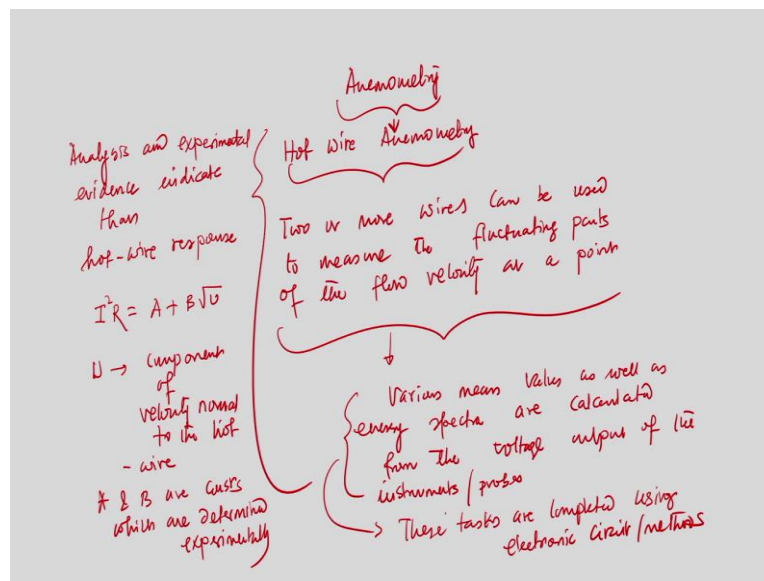 Anemometry
Hot wire Anemometry
Two or more wires can be used
to measure the fluctuating parts
of the flow velocity at a point
Various mean values as well as
energy spectra are calculated
from the voltage output of the
instruments/probes
These tasks are completed using
electronic circuit/methods
Analysis and experimental
evidence indicate
than
hot-wire response
I²R = A + B√U
U → component
of
velocity normal
to the hot
- wire
A & B are consts
which are determined
experimentally